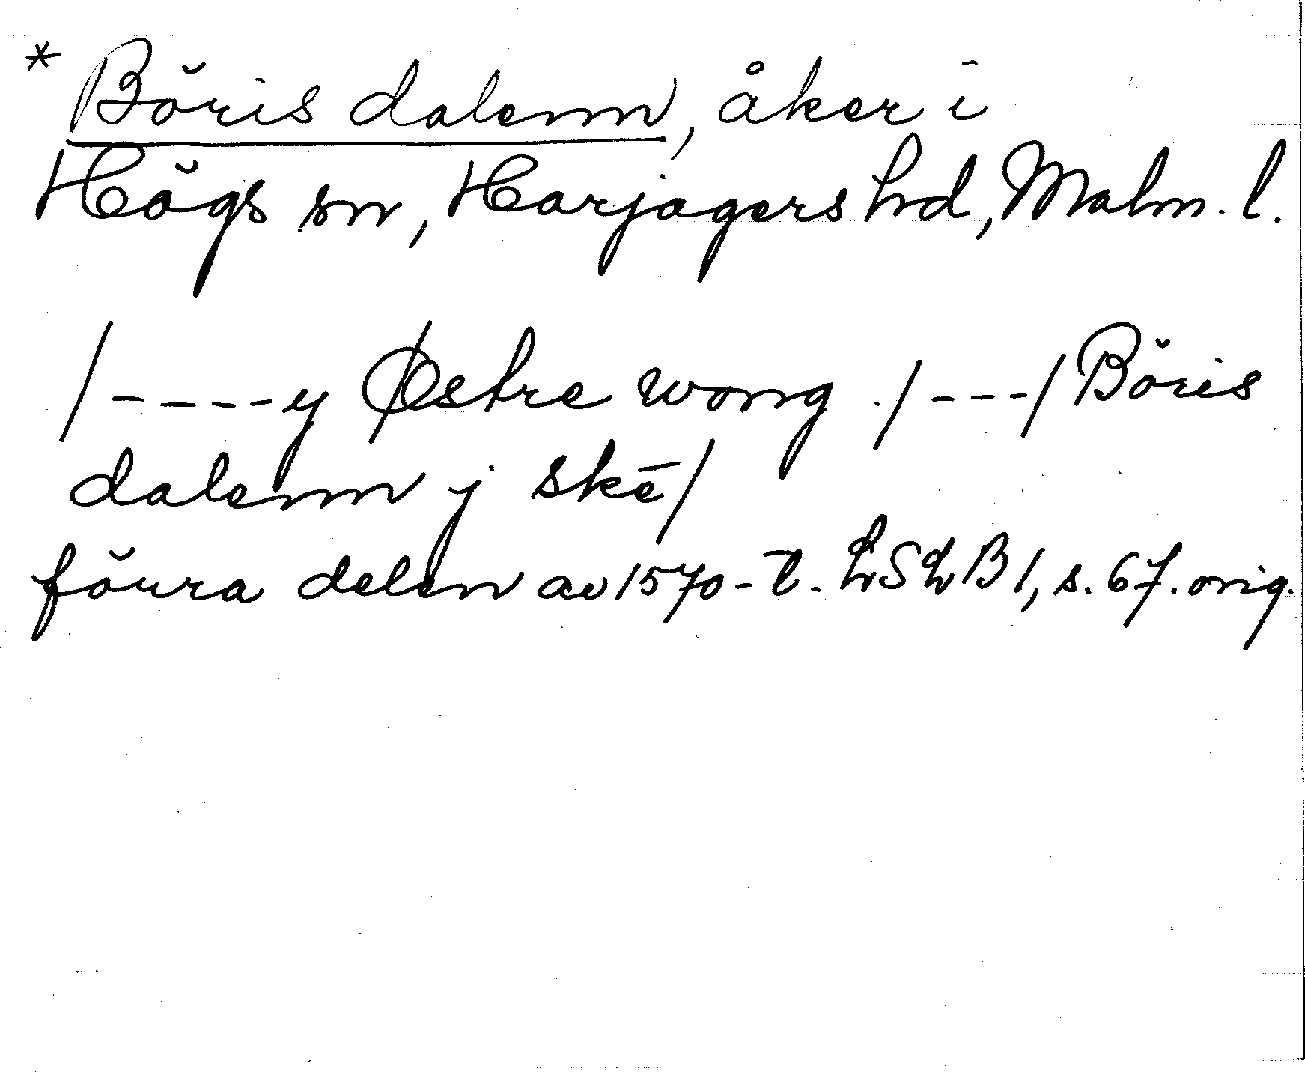 * Böris dalenn, åker i
Högs sn, Harjagers hd, Malm. l.
/----y Østre wong ./---/ Böris
dalenn j skē/
förra delen av 1570-t. LSLB 1, s. 67. orig.